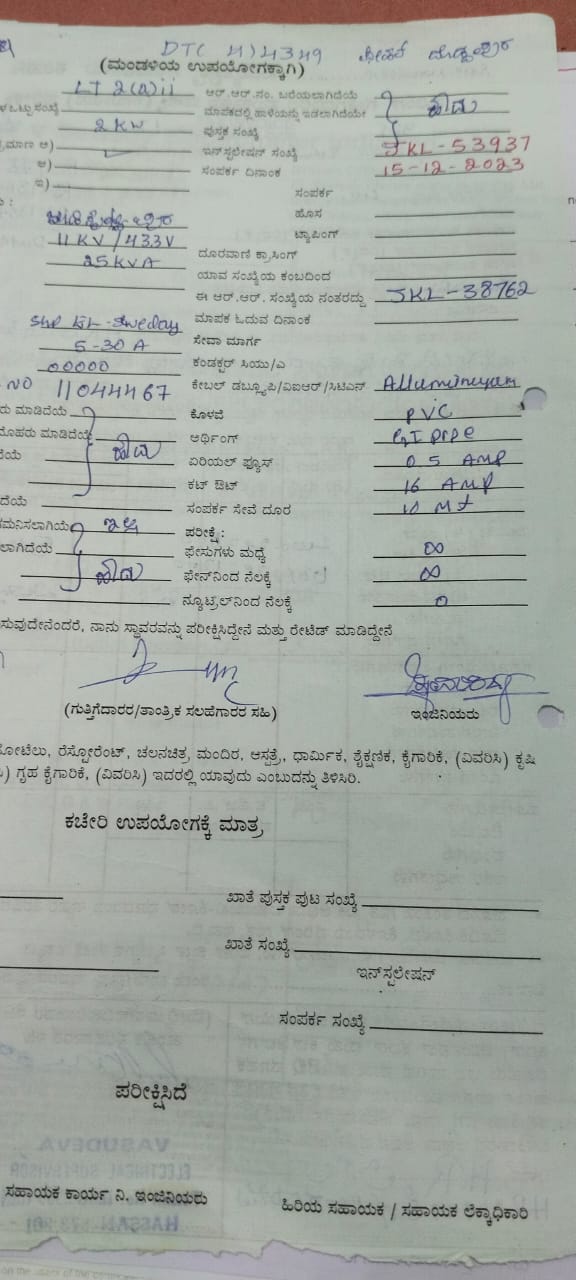 DTC 4)4349
(ಮಂಡಳಿಯ ಉಪಯೋಗಕ್ಕಾಗಿ)
LT 2(a)ii ಆರ್.ಆರ್.ನಂ. ಬರೆಯಲಾಗಿದೆಯೆ
ಳ ಒಟ್ಟು ಸಂಖ್ಯೆ ಮಾಪಕದಲ್ಲಿ ಹಾಳೆಯನ್ನು ಇಡಲಾಗಿದೆಯೇ ಹೌದು
2 KW ಪುಸ್ತಕ ಸಂಖ್ಯೆ
ಪ್ರಮಾಣ ಅ) ಇನ್‌ಸ್ಟಲೇಷನ್ ಸಂಖ್ಯೆ JKL-53937
ಆ) ಸಂಪರ್ಕ ದಿನಾಂಕ 15-12-2023
ಇ) ಸಂಪರ್ಕ
ಹೊಸ
11 KV / 433V ಟ್ಯಾಪಿಂಗ್
25 KVA ದೂರವಾಣಿ ಕ್ರಾಸಿಂಗ್
ಯಾವ ಸಂಖ್ಯೆಯ ಕಂಬದಿಂದ
ಈ ಆರ್.ಆರ್. ಸಂಖ್ಯೆಯ ನಂತರದ್ದು JKL-38762
ಮಾಪಕ ಓದುವ ದಿನಾಂಕ
5-30 A ಸೇವಾ ಮಾರ್ಗ
00000 ಕಂಡಕ್ಟರ್ ಸಿಯು/ಎ
NO 11044467 ಕೇಬಲ್ ಡಬ್ಲ್ಯೂಪಿ/ಐಆರ್/ಸಿಟಿಎಸ್ Allumineyam
ರು ಮಾಡಿದೆಯೆ ಕೊಳವೆ PVC
ಮೊಹರು ಮಾಡಿದೆಯೆ ಹೌದು ಆರ್ಥಿಂಗ್ GI pipe
ಯೆ ಏರಿಯಲ್ ಫ್ಯೂಸ್ 0.5 AMP
ಕಟ್ ಔಟ್ 16 AMP
ದೆಯೆ ಸಂಪರ್ಕ ಸೇವೆ ದೂರ 10 Mt
ಗಮನಿಸಲಾಗಿಯೆ ಇಲ್ಲ ಪರೀಕ್ಷೆ :
ಲಾಗಿದೆಯೆ ಫೇಸುಗಳು ಮಧ್ಯೆ ∞
ಹೌದು ಫೇಸ್‌ನಿಂದ ನೆಲಕ್ಕೆ ∞
ನ್ಯೂಟ್ರಲ್‌ನಿಂದ ನೆಲಕ್ಕೆ 0
ಸುವುದೇನೆಂದರೆ, ನಾನು ಸ್ಥಾವರವನ್ನು ಪರೀಕ್ಷಿಸಿದ್ದೇನೆ ಮತ್ತು ರೇಟಿಡ್ ಮಾಡಿದ್ದೇನೆ
(ಗುತ್ತಿಗೆದಾರರ/ತಾಂತ್ರಿಕ ಸಲಹೆಗಾರರ ಸಹಿ) ಇಂಜಿನಿಯರು
ಹೋಟೆಲು, ರೆಸ್ಟೋರೆಂಟ್, ಚಲನಚಿತ್ರ, ಮಂದಿರ, ಆಸ್ಪತ್ರೆ, ಧಾರ್ಮಿಕ, ಶೈಕ್ಷಣಿಕ, ಕೈಗಾರಿಕೆ, (ವಿವರಿಸಿ) ಕೃಷಿ
) ಗೃಹ ಕೈಗಾರಿಕೆ, (ವಿವರಿಸಿ) ಇದರಲ್ಲಿ ಯಾವುದು ಎಂಬುದನ್ನು ತಿಳಿಸಿರಿ.
ಕಚೇರಿ ಉಪಯೋಗಕ್ಕೆ ಮಾತ್ರ
ಖಾತೆ ಪುಸ್ತಕ ಪುಟ ಸಂಖ್ಯೆ
ಖಾತೆ ಸಂಖ್ಯೆ
ಇನ್‌ಸ್ಟಲೇಷನ್
ಸಂಪರ್ಕ ಸಂಖ್ಯೆ
ಪರೀಕ್ಷಿಸಿದೆ
ಸಹಾಯಕ ಕಾರ್ಯ ನಿ. ಇಂಜಿನಿಯರು ಹಿರಿಯ ಸಹಾಯಕ / ಸಹಾಯಕ ಲೆಕ್ಕಾಧಿಕಾರಿ